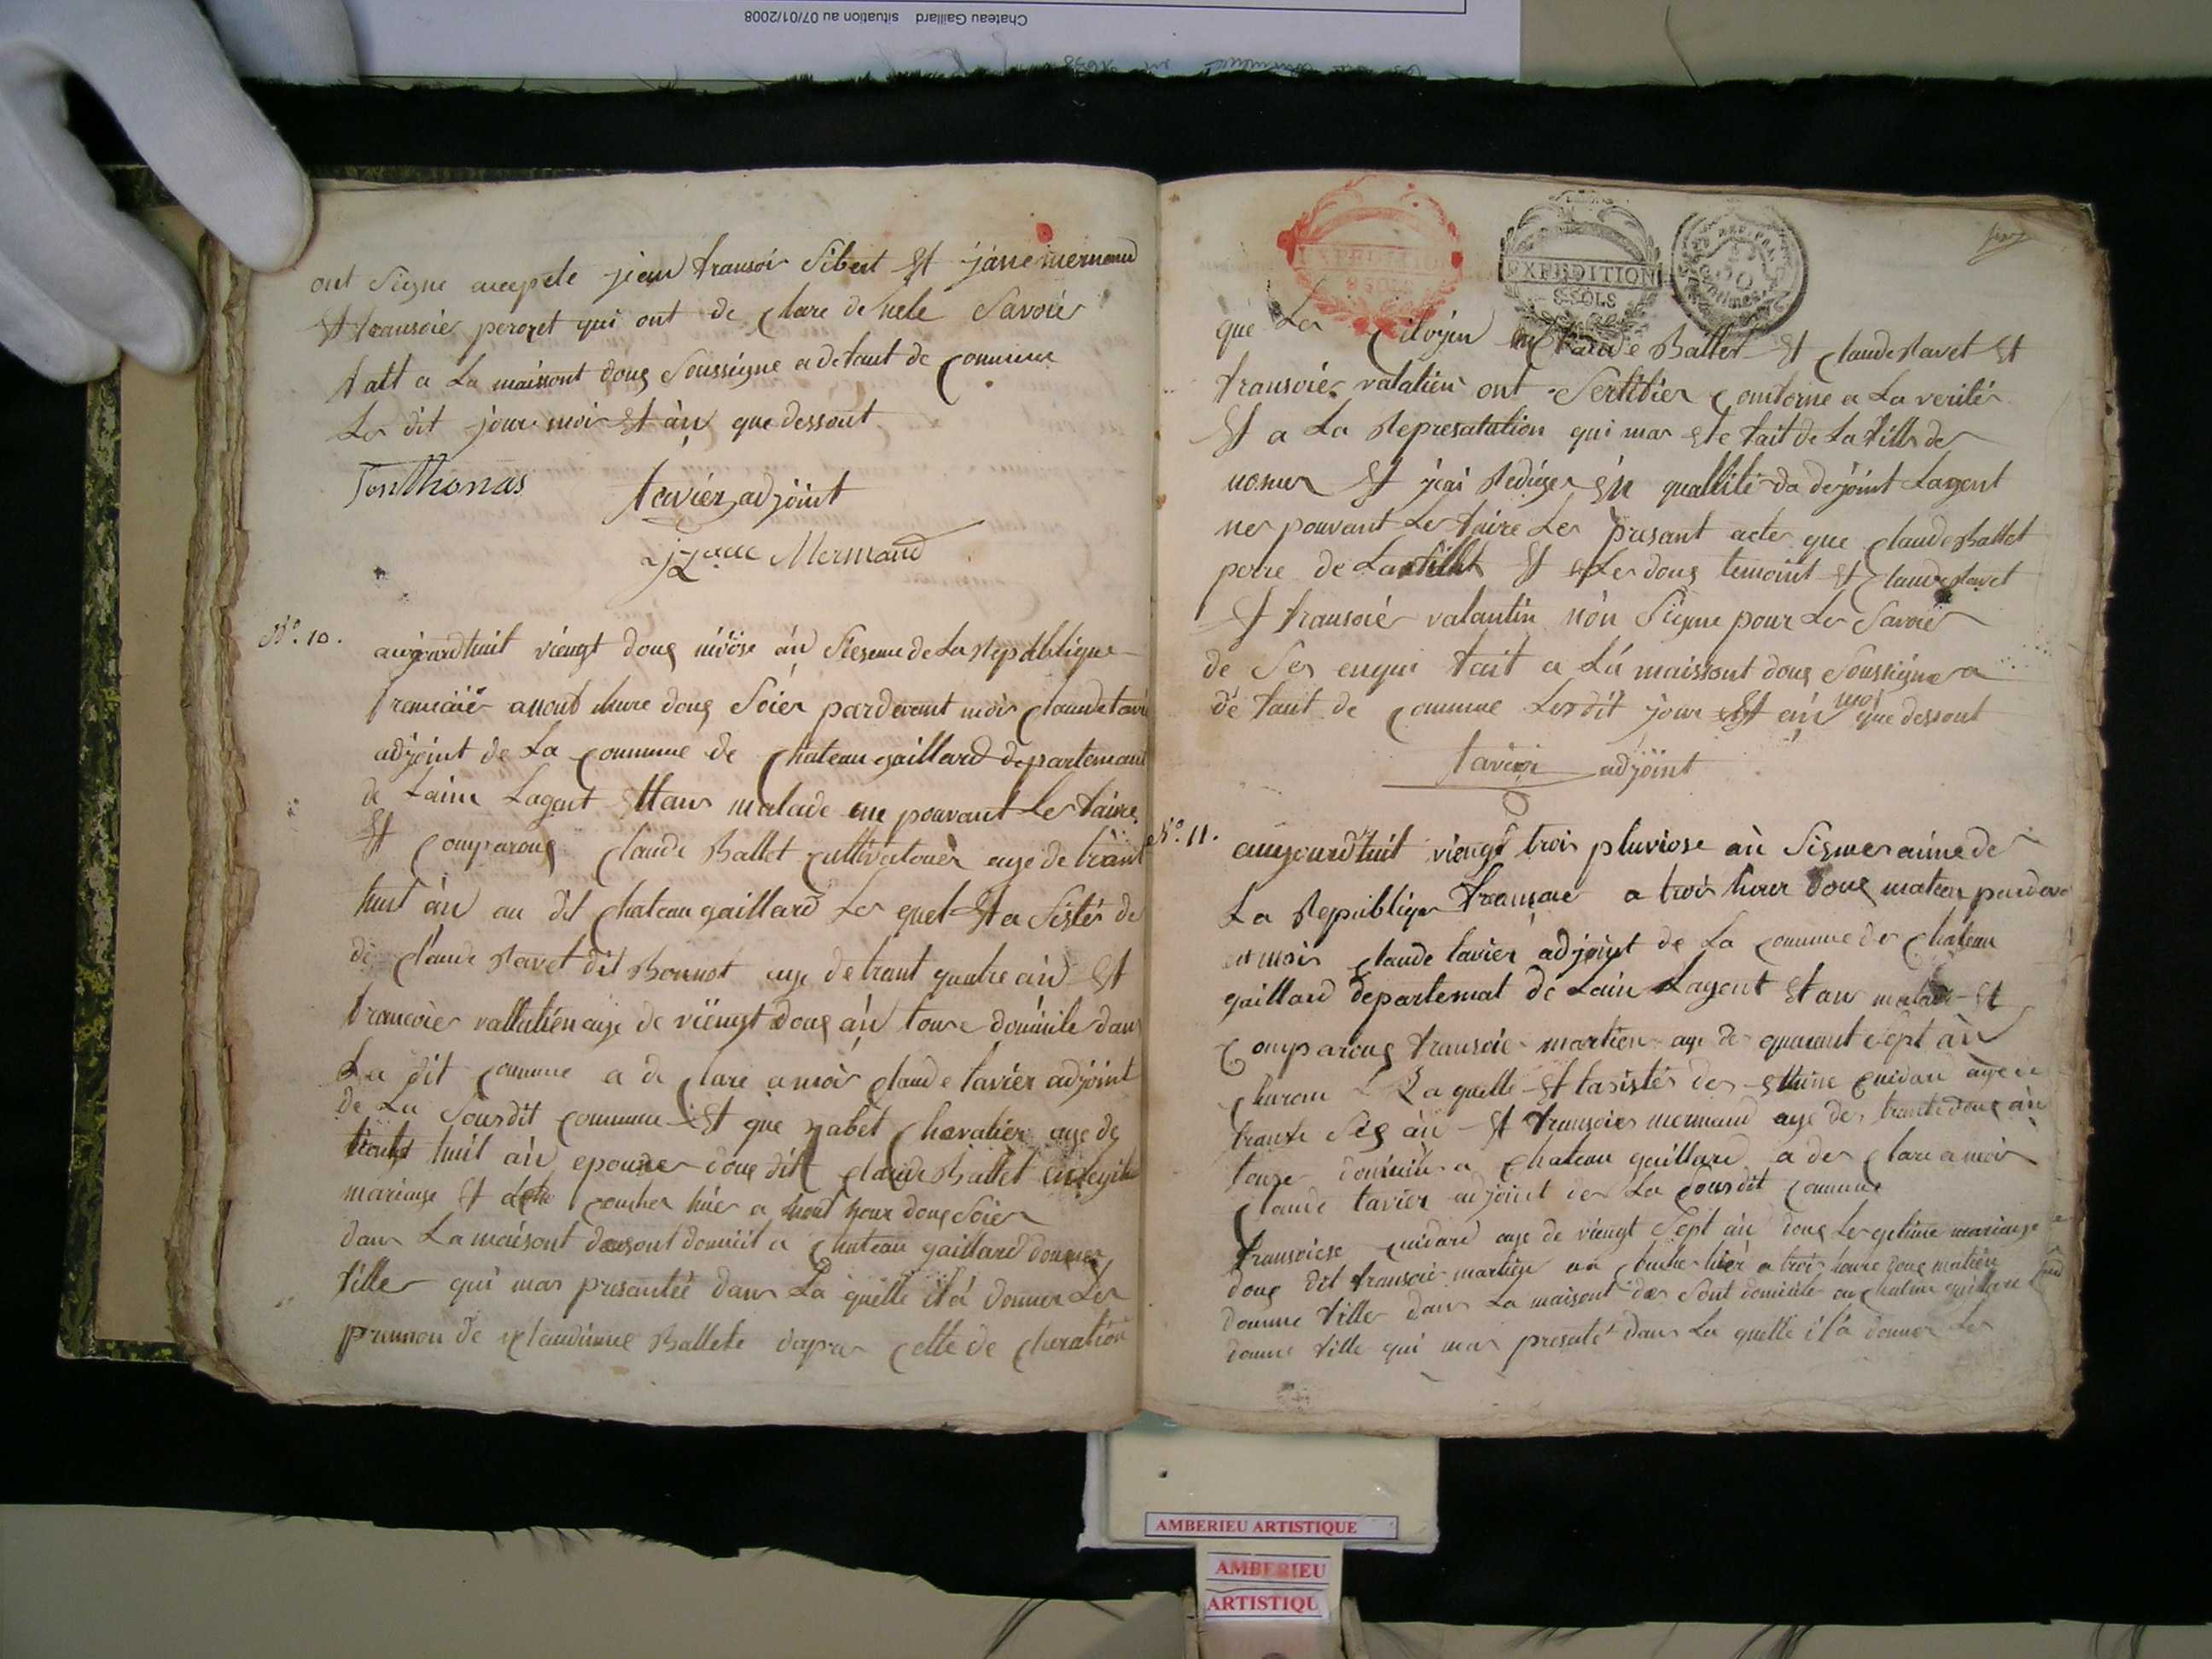 Chateau Gaillard situation au 07/01/2008
ont Signe accepete jean fransoir Sibert Et jane mermand
Et fransoier peroret qui ont de Clare de nele Savoier
fatt a La maissont douz Soussigne a defaut de Commune
Le dit jour mois Et àn que dessout
Tonthonas favier adjoint
Mermand
N°. 10.
aujourdhuit viengt douz nivose àn Sieseme de La Republique
francaise a nout hure douz Soier pardevant moir Claude favie
adjoint de La Commune de Chateau gaillard departemant
de Lainn Lagent Ettans malade ene pouvant Les faire
Et Comparouz Claude Ballet Cultivatouer age de trant
huit àn au dit Chateau gaillard Les quel Et a Sistér de
de Claude Ravet dit Bonnot age de trant quatre àn Et
francoier vallatién age de viengt douz àn touse domicile dans
La dit Commune a de Clare a moir Claude favier adjoint
de La Sousdit Commune Et que zabet Chevalier age de
trante huit àn epouser douz dit Claude Ballet en legitime
mariage Et a Coucher hier a nout hour douz Soier
dans La maisont de sont domicil a Chateau gaillard doune
filler qui mas presantée dans La quelle il a donner Les
prennon de Claudinne Ballete dapres Celle de Claration
EXPEDITION
8 SOLS
EXPEDITION
8 SOLS
que Les Citoyen Claude Ballet Et Claude Ravet Et
fransoier valatien ont Sertifier Comforme a La veritér
Et a La Represatation qui mas Ete fait de La filler de
nomer Et jeai Rediger én quallité da dejoint Lagent
ner pouvant Les faire Les presant acter que Claude Ballet
perre de La fillet Et Les douz temoint Et Claude Ravet
Et fransoiér valantin nòn Siegne pour Les Savoier
de Ses enqui fait a Là maissont douz Soussigner a
défaut de Commune Les dit jour moi Et én que dessout
favier adjoint
N°. 11.
aujourdhuit viengt trois pluviose àn Siesmes anne de
La Republiqe francaise a trois hour douz maten pardeva
moir Claude favier adjoint de La Commune de Chateau
gaillard departemat de Lain Lagent Etans malade Et
Comparouz fransoie martien age de quarant Sept àn
Charon Laquelle Et tasister des Ettiene Cuidard age de
trante Sis àn Et fransoies mermand age de trante douz àn
touse domicile a Chateau gaillard a de Clare a moir
Claude favier adjoint de La Sousdit Commune
fransoiese Cuidard age de viengt Sept àn douz Legetime mariage
douz dit fransoie martien a Couche hier a trois houre douz matien
doune filler dans La maisont de Sont domicile au Chateau gaillard
doune fille qui mas presaté dans La quelle il a donner Les
AMBERIEU ARTISTIQUE
AMBERIEU
ARTISTIQU